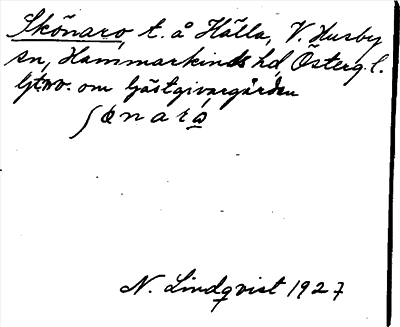 Skönaro, t. å Hålla, V. Husby
sn, Hammarkinds hd, Österg. l.
Gtnv. om Gästgivargården
N. Lindqvist 1927